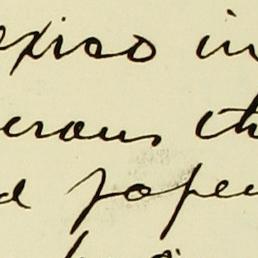 exico in
erous th
d pape